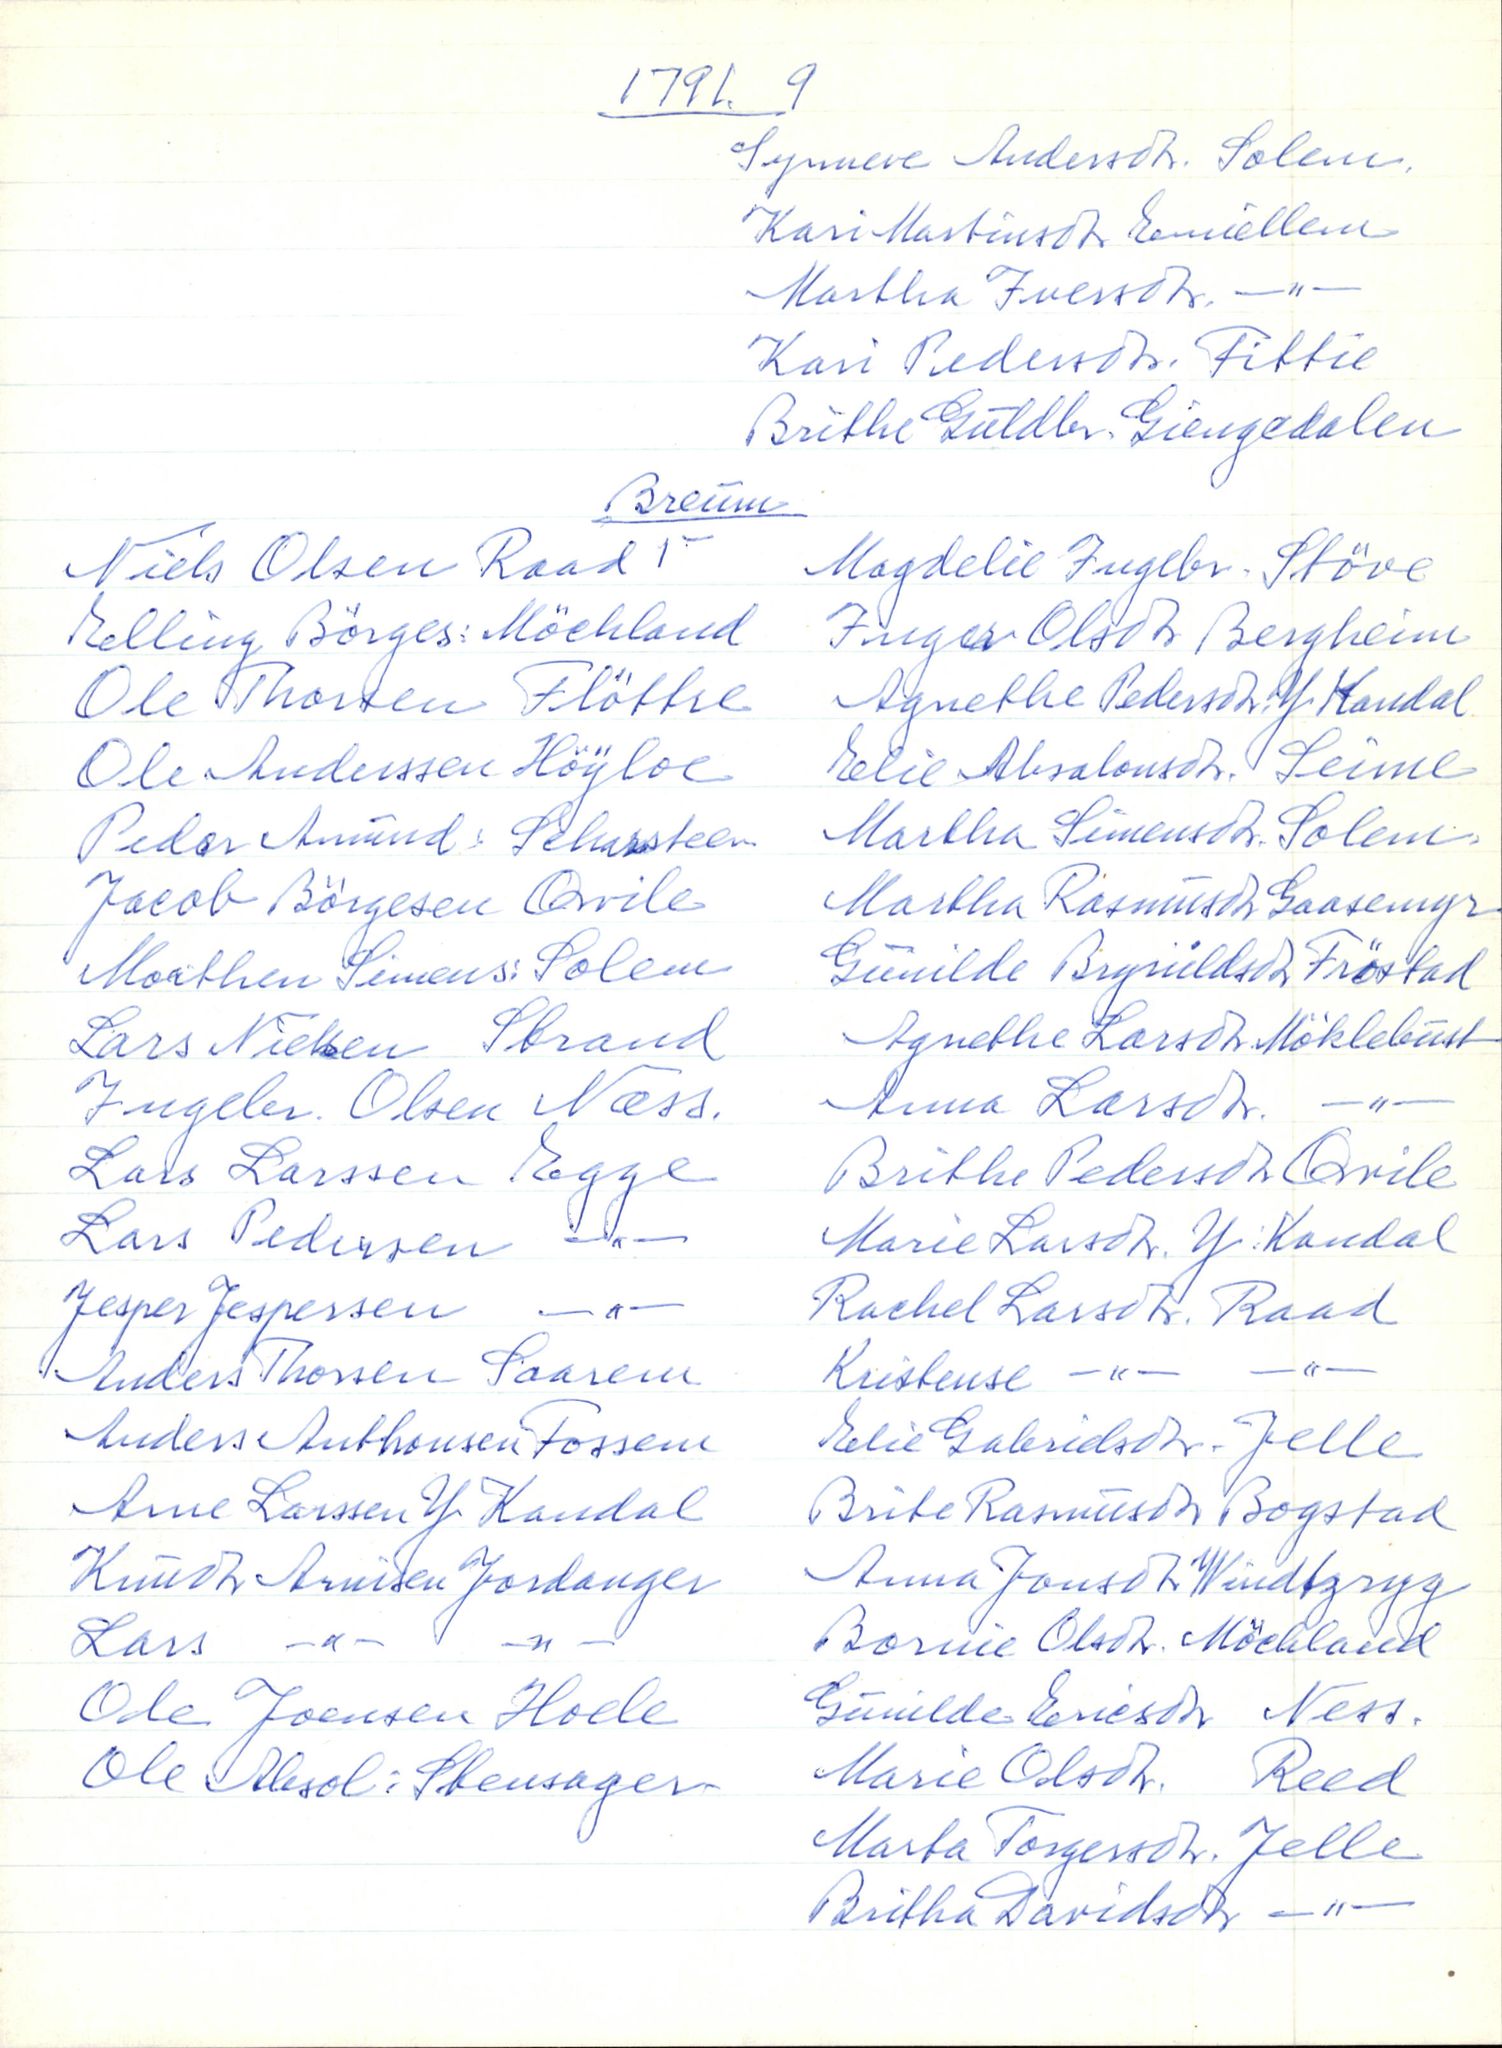 1791. 9
Synneve Andersdtr. Solem.
Kari Martinsdtr Emiellem
Martha Iversdtr. —"—
Kari Pedersdtr. Fittie
Brithe Guldbr. Giengedalen
Breum
Niels Olsen Raad
Elling Börges: Möchland
Ole Thorsen Flöttre
Ole Anderssen Höÿloe
Peder Amund: Scharsteen
Jacob Börgesen Qvile
Morthen Simens: Solem
Lars Nielsen Strand
Ingebr. Olsen Næss.
Lars Larssen Egge
Lars Pedersen —"—
Jesper Jespersen —"—
Anders Thorsen Saarem
Anders Anthonsen Fossem
Arne Larssen Y. Kandal
Knudt Arnisen Jordanger
Lars —"— —"—
Ole Joensen Hoele
Ole Absol: Stensager
Magdelie Ingebr. Stöve
Inger Olsdtr Bergheim
Agnethe Pedersdtr. Y. Kandal
Elie Absalonsdtr. Seime
Martha Simensdtr. Solem.
Martha Rasmusdtr Gaasemyr
Gunilde Brynildsdtr Fröstad
Agnethe Larsdtr. Möklebust
Anna Larsdtr. —"—
Brithe Pedersdtr Qvile
Marie Larsdtr. Y: Kandal
Rachel Larsdtr. Raad
Kristense —"— —"—
Elie Gabrielsdtr. Jelle
Brite Rasmusdtr Bogstad
Anna Jonsdtr Windtzryg
Bornie Olsdtr. Möchland
Gunilde Ericsdtr Ness.
Marie Olsdtr. Reed
Marta Torgersdtr. Jelle
Britha Davidsdtr —"—